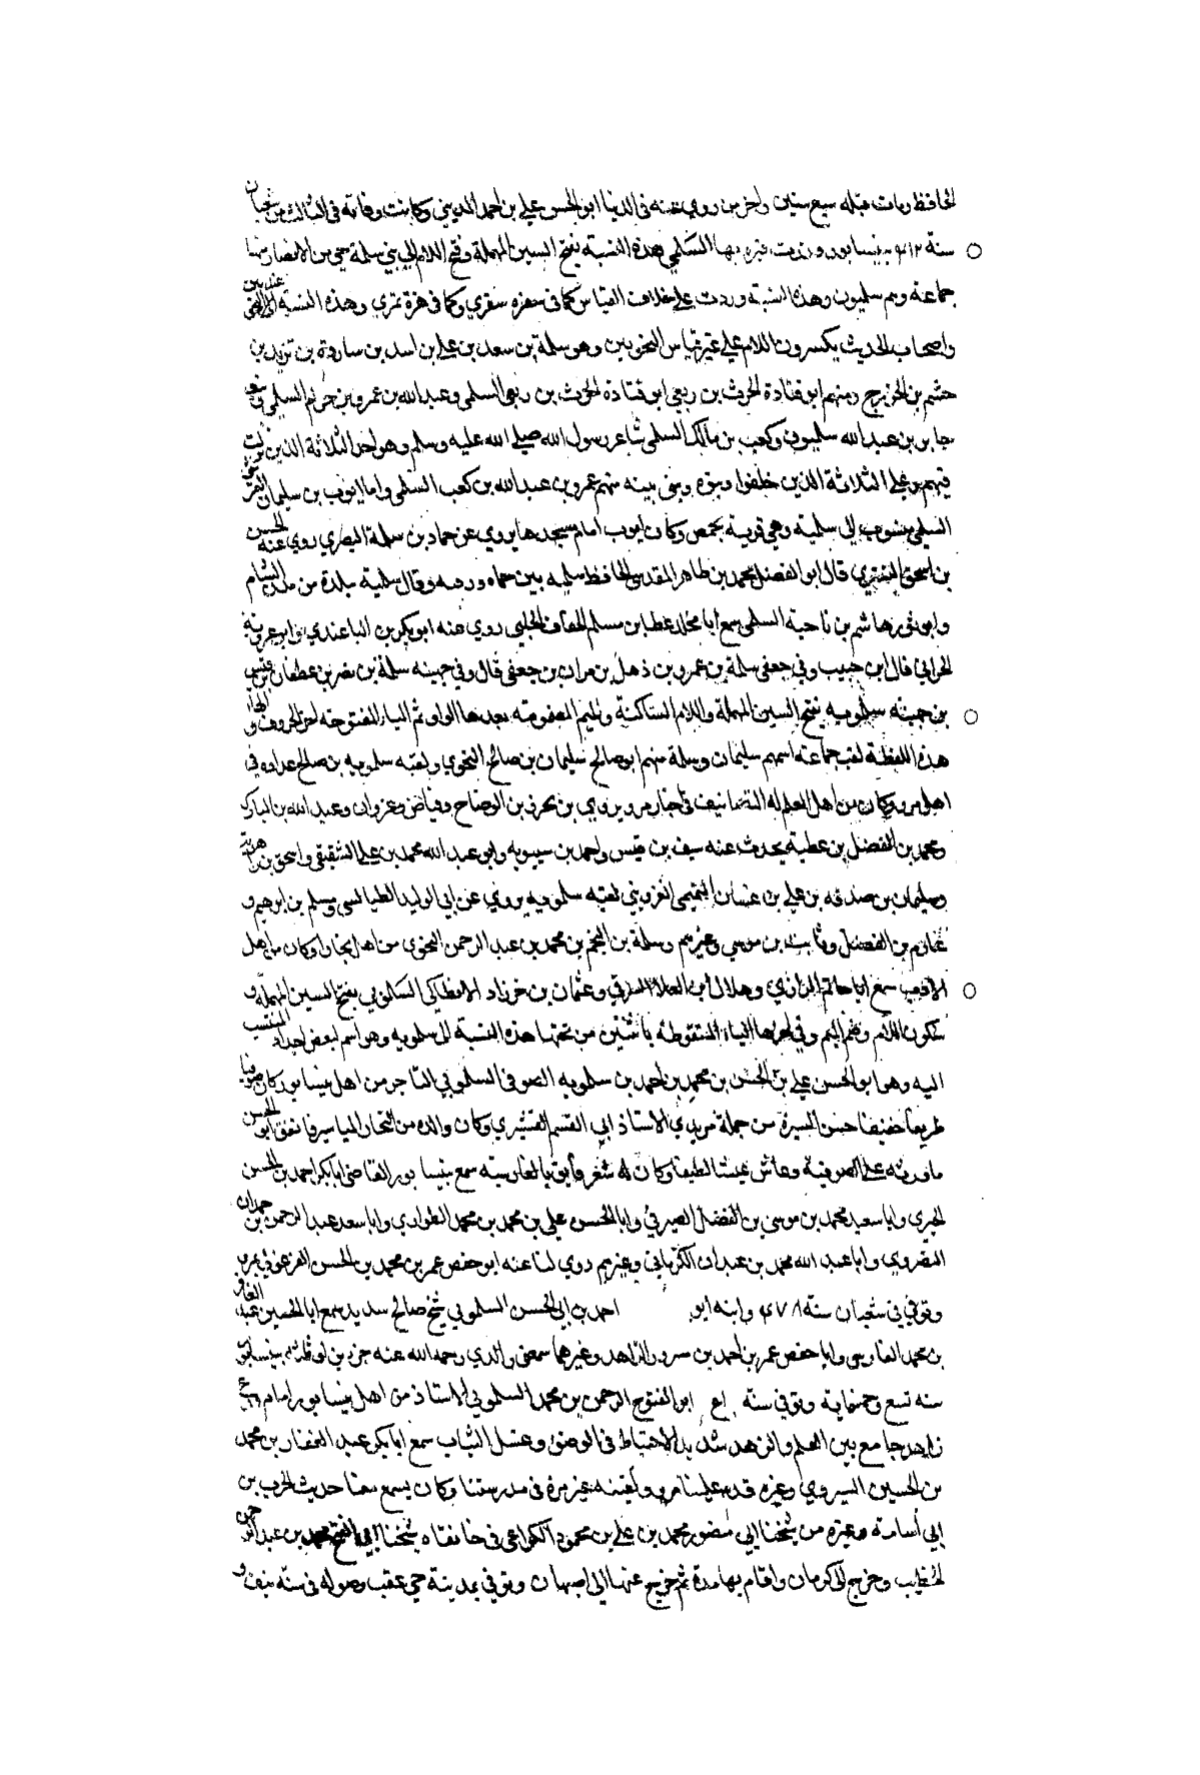 الحافظ ومات قبله سبع سنين واخر من روي عنه في الدنيا ابو الحسن علي بن احمد المديني وكانت وفاته في الثالث من شعبان
سنة ٤١٢ بنيسابور وزرت قبره بها السلمي هذه النسبة بفتح السين المهملة وفتح اللام الي بني سلمة حي من الانصار منها
جماعة وهم سلميون وهذه النسبة وردت علي خلاف القياس كما في سفره سفري وكما في نمرة نمري وهذه النسبة عند النحويين
واصحاب الحديث يكسرون اللام علي غير قياس النحويين وهو سلمة بن سعد بن علي بن اسد بن ساردة بن تزيد بن
جشم بن الخزرج ومنهم ابو قتادة الحرث بن ربعي ابو قتادة الحرث بن ربعي السلمي وعبد الله بن عمرو بن حرام السلمي
جابر بن عبد الله سلميون وكعب بن مالك السلمي شاعر رسول الله صلي الله عليه وسلم وهو احد الثلاثة الذين نزلت
فيهم وعلي الثلاثة الذين خلفوا وبنوه وبني بنيه منهم عمرو بن عبد الله بن كعب السلمي واما ايوب بن سليمان
السلمي منسوب الي سلمية وهي قرية بحمص وكان ايوب امام مسجدها يروي عن حماد بن سلمة البصري روي عنه الحسين
بن اسحق التستري قال ابو الفضل محمد بن طاهر المقدسي الحافظ سلمية بين حماه ورمنه وقال سلمية بلدة من بلاد الشام
وابو ثور هاشم بن ناجية السلمي سمع ابا مخلد عطا بن مسلم الخفاف الحلبي روي عنه ابو بكر بن الباغندي وابو عروبة
الحراني قال ابن حبيب وفي جعفي سلمة بن عمرو بن ذهل بن مران بن جعفي قال وفي جهينه سلمة بن نصر بن غطفان بن قيس
بن جهينه سلمويه بفتح السين المهملة واللام الساكنة والميم المضمومة بعدها الواو ثم الياء المفتوحة اخر الحروف والهاء
هذه اللفظة لقب جماعة اسمهم سليمان وسلمة منهم ابو صالح سليمان بن صالح النحوي ولقبه سلمويه بن صالح عداده في
اهل مرو وكان من اهل العلم له التصانيف في اخبار مرو يروي بن بحر بن الوضاح وفياض وغزوان وعبد الله بن المبارك
ومحمد بن الفضل بن عطية يحدث عنه سيف بن قيس واحمد بن سيبويه وابو عبد الله محمد بن علي الشقيقي واسحق بن
وسليمان بن صدقه بن علي بن غسان التميمي القزويني لقبه سلمويه يروي عن ابي الوليد الطيالسي ومسلم بن ابرهيم و
غانم بن الفضل وثابت بن موسي وغيرهم وسلمة بن النجم بن محمد بن عبد الرحمن النحوي من اهل بخارا وكان من اهل
الادب سمع ابا حاتم الرازي وهلال ابن العلاء الرقي وعثمان بن خرزاد الانطاكي السلمويي بفتح السين المهملة و
سكون اللام وضم الميم وفي اخرها الياء المنقوطة باثنتين من تحتها هذه النسبة الي سلمويه وهو اسم لبعض اجداد المنتسب
اليه وهو ابو الحسن علي بن الحسن بن محمد بن احمد بن سلمويه الصوفي السلمويي التاجر من اهل نيسابور كان صوفيا
ظريفا خفيفا حسن السيرة من جملة مريدي الاستاذ ابي القسم القشيري وكان والده من التجار المياسير فانفق ابو الحسن
ما ورثه علي الصوفية وعاش عيشا لطيفا وكان له شعر بالفارسية سمع بنيسابور القاضي ابا بكر احمد بن الحسن
الحيري وابا سعيد محمد بن موسي بن الفضل الصيرفي وابا الحسن علي بن محمد بن محمد الطوازي وابا سعد عبد الرحمن بن حمدان
النصروي وابا عبد الله محمد بن عبدان الكرماني وغيرهم روي لنا عنه ابو حفص عمر بن محمد بن الحسن الفرغولي بمرو
وتوفي في شعبان سنة ٤٧٨ وابنه ابو احمد بن ابي الحسن السلمويي شيخ صالح سديد سمع ابا الحسين عبد الغافر
بن محمد الفارسي وابا حفص عمر بن احمد بن سرور الزاهد وغيرهما سمع والدي رحمه الله عنه بنيسابور
سنه تسع وخمسماية وتوفي سنة ابو الفتوح الرحمن بن محمد السلمويي الاستاذ من اهل نيسابور امام
زاهد جامع بين العلم والزهد شديد الاحتياط في الوضوء وغسل الثياب سمع ابا بكر عبد الغفار بن محمد
بن الحسين السيروي وغيره قدم علينا مرو ولقيته غير مرة في مدرستنا وكان يسمع معنا حديث الحرب بن
ابي أسامة وغيره من شيخنا ابي منصور محمد بن علي بن محمود الكراعي في خانقاه شيخنا ابي الفتح محمد بن عبد الرحمن
الخطيب وخرج الي كرمان واقام بها مدة ثم خرج عنها الي اصبهان وتوفي بمدينة جي عقب وصوله في سنة نيف و